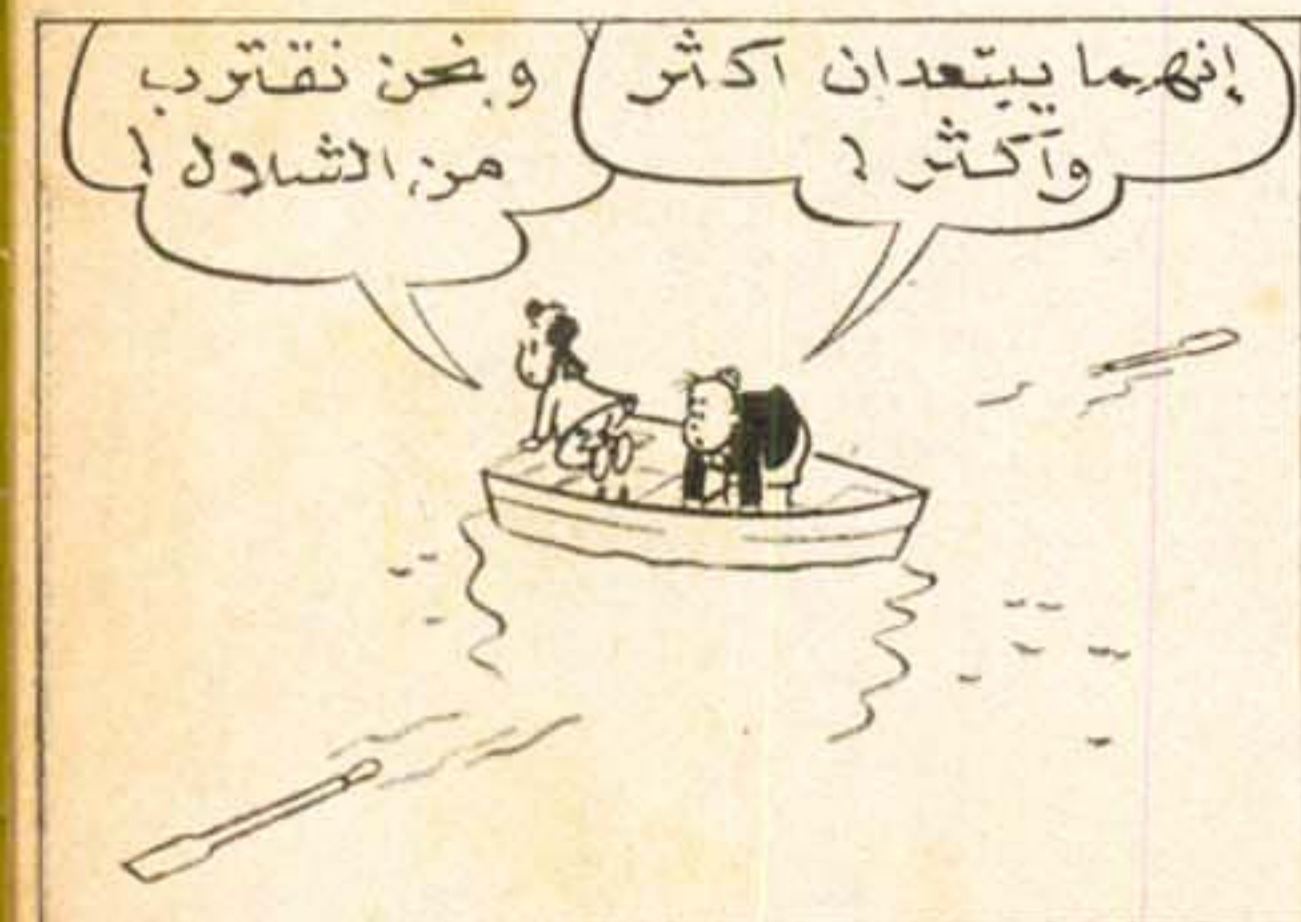 إنهما يبتعدان أكثر
وأكثر !
ونحن نقترب
من الشلال !